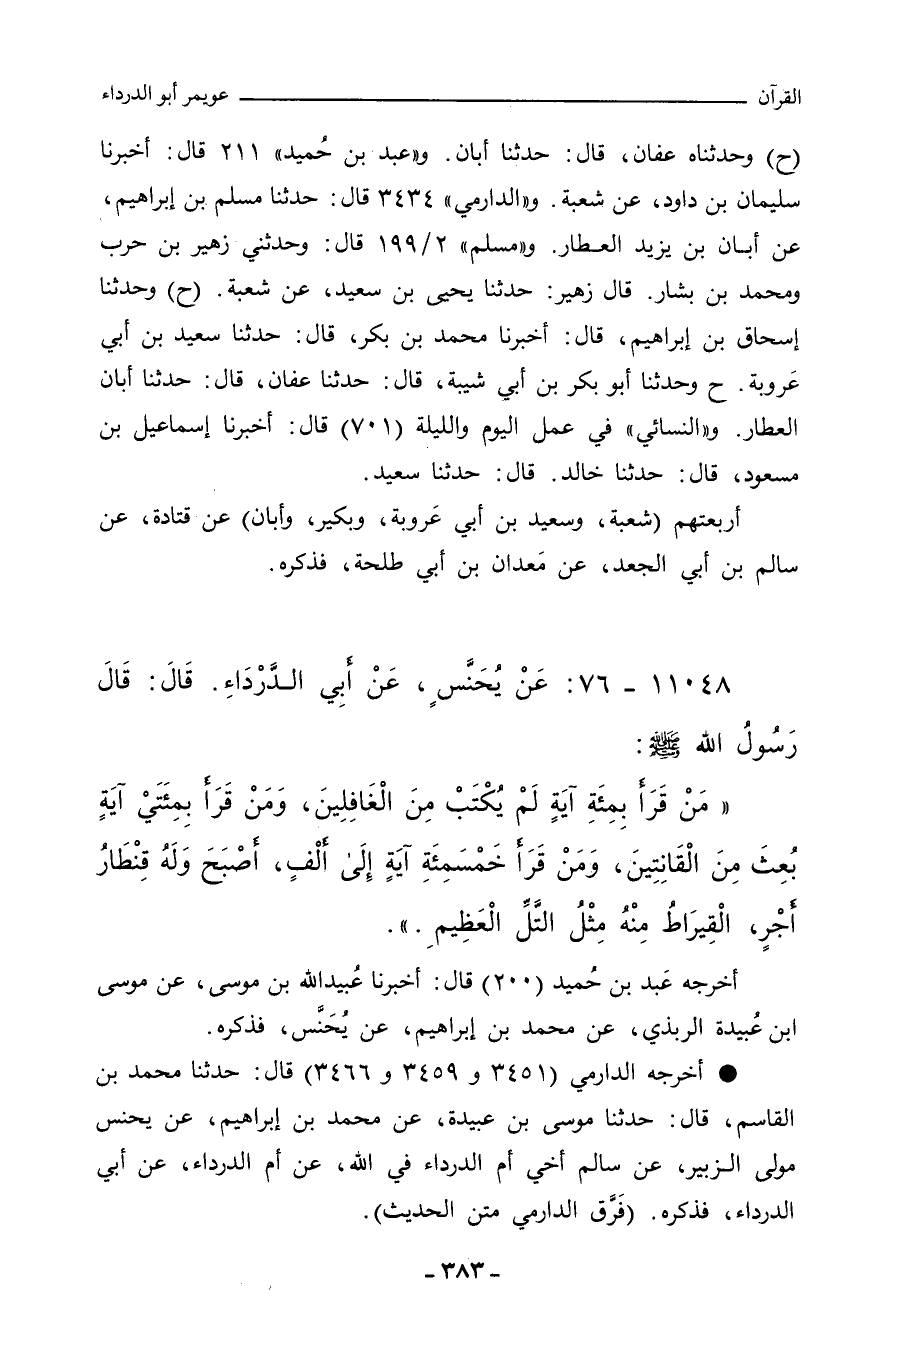 القرآن ــــــــــــــــــــ عويمر أبو الدرداء
(ح) وحدثناه عفان، قال: حدثنا أبان. و«عبد بن حُميد» ٢١١ قال: أخبرنا
سليمان بن داود، عن شعبة. و«الدارمي» ٣٤٣٤ قال: حدثنا مسلم بن إبراهيم،
عن أبان بن يزيد العطار. و«مسلم» ١٩٩/٢ قال: وحدثني زهير بن حرب
ومحمد بن بشار. قال زهير: حدثنا يحيى بن سعيد، عن شعبة. (ح) وحدثنا
إسحاق بن إبراهيم، قال: أخبرنا محمد بن بكر، قال: حدثنا سعيد بن أبي
عَروبة. ح وحدثنا أبو بكر بن أبي شيبة، قال: حدثنا عفان، قال: حدثنا أبان
العطار. و«النسائي» في عمل اليوم والليلة (٧٠١) قال: أخبرنا إسماعيل بن
مسعود، قال: حدثنا خالد. قال: حدثنا سعيد.
أربعتهم (شعبة، وسعيد بن أبي عَروبة، وبكير، وأبان) عن قتادة، عن
سالم بن أبي الجعد، عن مَعدان بن أبي طلحة، فذكره.
١١٠٤٨ - ٧٦: عَنْ يُحَنَّسٍ، عَنْ أَبِي الدَّرْدَاءِ. قَالَ: قَالَ
رَسُولُ الله ﷺ:
« مَنْ قَرَأَ بِمِئَةِ آيَةٍ لَمْ يُكْتَبْ مِنَ الْغَافِلِينَ، وَمَنْ قَرَأَ بِمِئَتَيْ آيَةٍ
بُعِثَ مِنَ الْقَانِتِينَ، وَمَنْ قَرَأَ خَمْسَمِئَةِ آيَةٍ إِلَىٰ أَلْفٍ، أَصْبَحَ وَلَهُ قِنْطَارُ
أَجْرٍ، الْقِيرَاطُ مِنْهُ مِثْلُ التَّلِّ الْعَظِيمِ .».
أخرجه عَبد بن حُميد (٢٠٠) قال: أخبرنا عُبيدالله بن موسى، عن موسى
ابن عُبيدة الربذي، عن محمد بن إبراهيم، عن يُحَنَّس، فذكره.
● أخرجه الدارمي (٣٤٥١ و ٣٤٥٩ و ٣٤٦٦) قال: حدثنا محمد بن
القاسم، قال: حدثنا موسى بن عبيدة، عن محمد بن إبراهيم، عن يحنس
مولى الزبير، عن سالم أخي أم الدرداء في الله، عن أم الدرداء، عن أبي
الدرداء، فذكره. (فَرَّق الدارمي متن الحديث).
- ٣٨٣ -